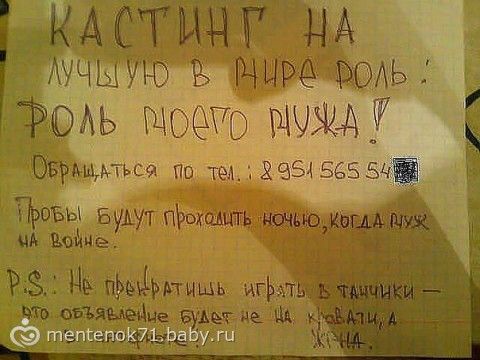 КАСТИНГ НА
ЛУЧШУЮ В МИРЕ РОЛЬ:
РОЛЬ МОЕГО МУЖА!
Обращаться по тел.: 8 951 565 54
Пробы будут проходить ночью, когда муж
на войне.
P.S.: Не прекратишь играть в танчики —
это объявление будет не на кровати, а
жена.
mentenok71.baby.ru